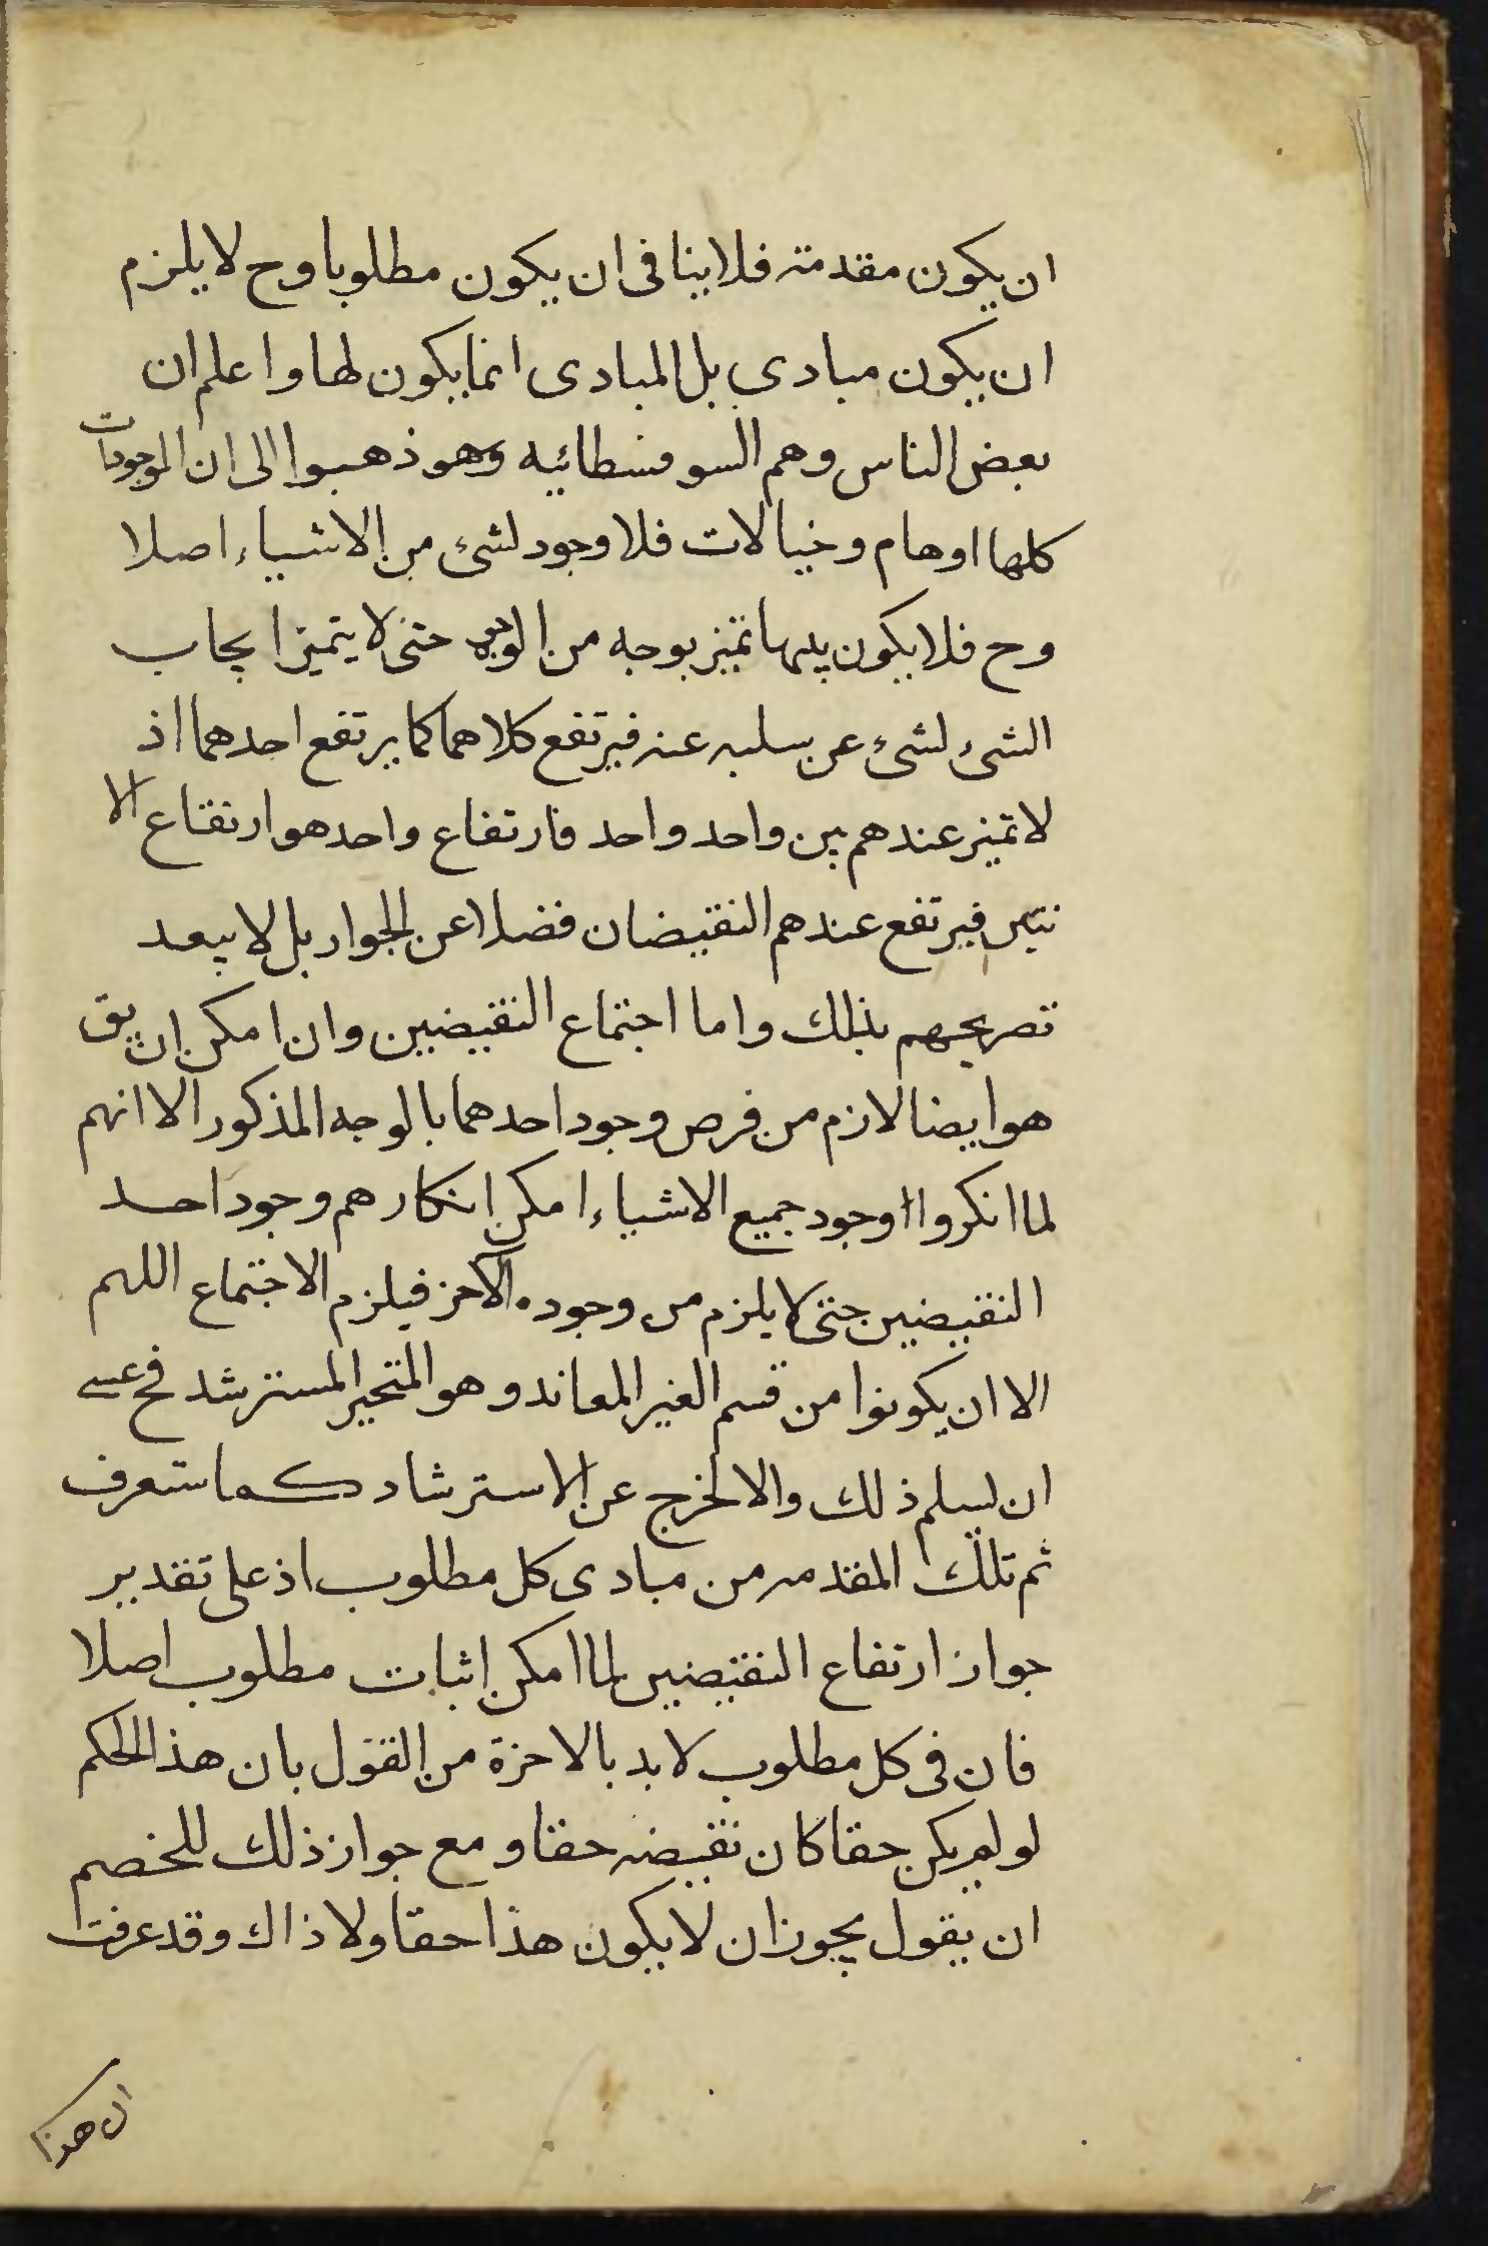 ان يكون مقدمة فلا ينافى ان يكون مطلوبا وح لا يلزم
ان يكون مبادى بل المبادى انما يكون لها واعلم ان
بعض الناس وهم السوفسطائيه وهو ذهبوا الى ان الموجودات
كلها اوهام وخيالات فلا وجود لشئ من الاشياء اصلا
وح فلا يكون بينها تميز بوجه من الوجوه حتى لا يتميز ايجاب
الشئ لشئ عن سلبه عنه فيرتفع كلاهما كما يرتفع احدهما اذ
لا تميز عندهم بين واحد وواحد فارتفاع واحد هو ارتفاع الا
ثنين فيرتفع عندهم النقيضان فضلا عن الجواز بل لا يبعد
تصريحهم بذلك واما اجتماع النقيضين وان امكن ان يق
هو ايضا لازم من فرض وجود احدهما بالوجه المذكور الا انهم
لما انكروا وجود جميع الاشياء امكن انكارهم وجود احد
النقيضين حتى لا يلزم من وجوده الآخر فيلزم الاجتماع اللهم
الا ان يكونوا من قسم الغير المعاند وهو المتحير المسترشد فح عسى
ان يسلم ذلك والا لخرج عن الاسترشاد كما ستعرف
ثم تلك المقدمه من مبادى كل مطلوب اذ على تقدير
جواز ارتفاع النقيضين لما امكن اثبات مطلوب اصلا
فان فى كل مطلوب لا بد بالاخرة من القول بان هذا الحكم
لو لم يكن حقا كان نقيضه حقا ومع جواز ذلك للخصم
ان يقول يجوز ان لا يكون هذا حقا ولا ذاك وقد عرفت
ان هذا